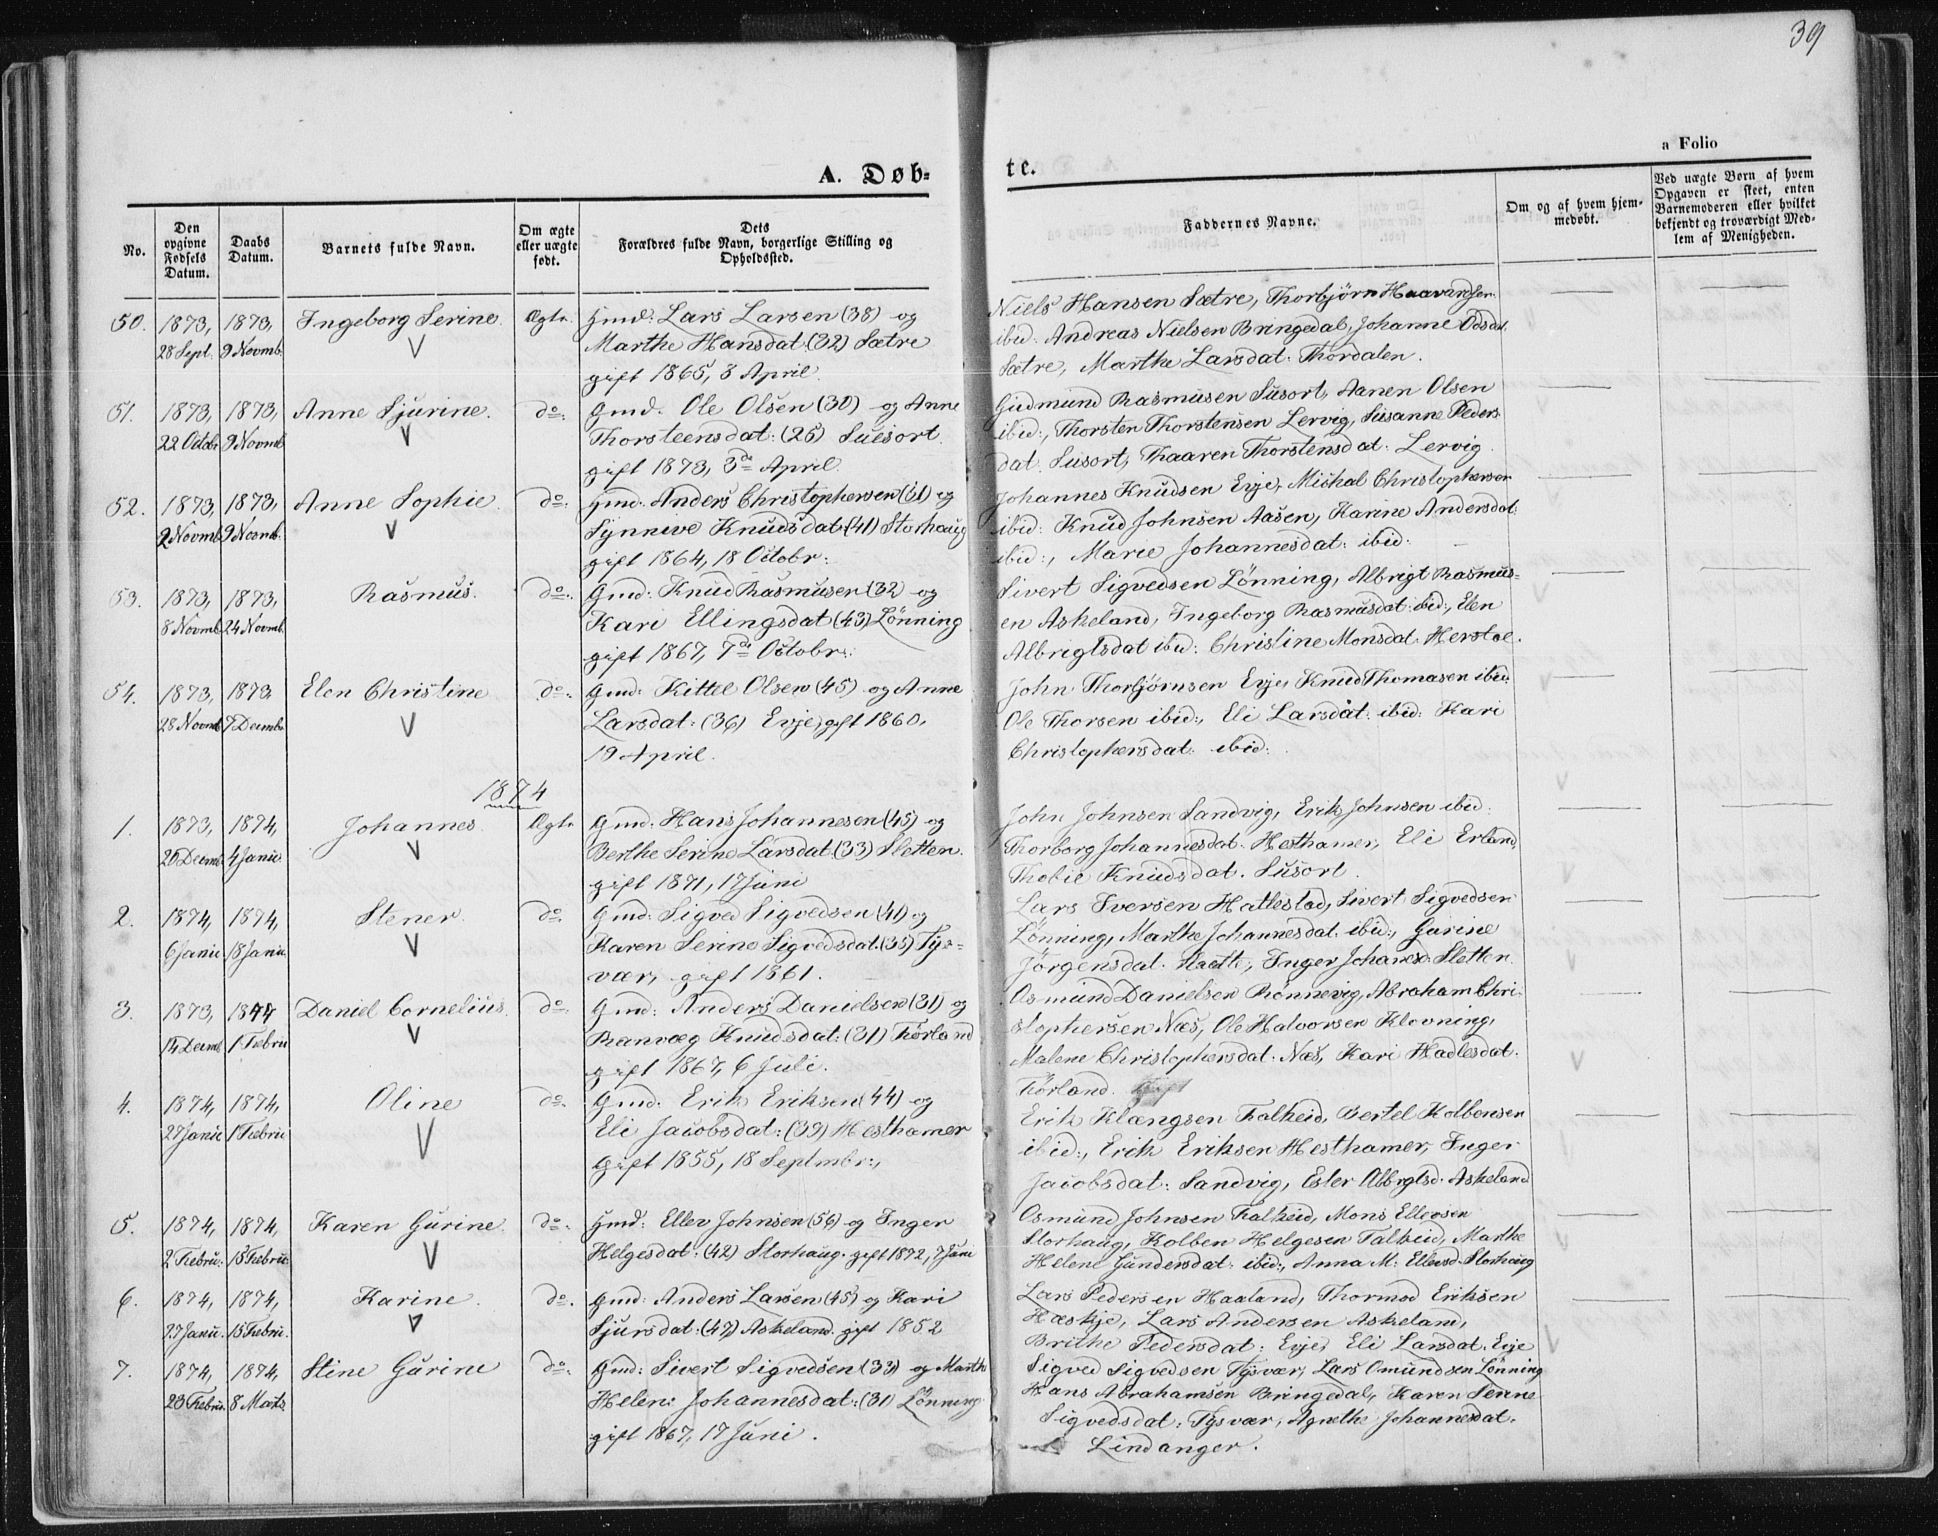 39
a Folio
A. Døb-
te.
No.
Den opgivne Fødsels Datum.
Daabs Datum.
Barnets fulde Navn.
Om ægte eller uægte født.
Dets Forældres fulde Navn, borgerlige Stilling og Opholdssted.
Faddernes Navne.
Om og af hvem hjemmedøbt.
Ved uægte Børn af hvem Opgaven er skeet, enten Barnemoderen eller hvilket bekjendt og troværdigt Medlem af Menigheden.
50. 1873, 1873, Ingeborg Serine Ægte Gmd: Lars Larsen (38) og
28 Sept. 9 Novmb. Marthe Hansdat: (32) Sætre
gift 1865, 3 April.
Niels Hansen Sætre, Thorbjørn Haavardsen
ibid. Andreas Nielsen Bringedal, Johanne Odsdat.
Sætre, Marthe Larsdat: Thordalen.
51. 1873, 1873, Anne Sjurine. do: Gmd: Ole Olsen (30) og Anne
22 Octobr 9 Novmb Thorsteensdat: (26) Suesort.
gift 1873, 3de April.
Gudmund Rasmusen Susort, Aanen Olsen
ibid:, Thorsten Thorstensen Lervig, Susanne Peders
dat. Susort, Thaaren Thorstensdat. Lervig
52. 1873, 1873, Anne Sophie. do: Gmd. Anders Christophersen (31) og
2 Novmb 9 Novmb. Synneve Knudsdat: (41) Storhaug
gift 1864, 18 Octobr:
Johannes Knudsen Evje, Michal Christophersen
ibid: Knud Johnsen Aasen, Karine Andersdat:
ibid:, Marie Johannesdat: ibid:
53. 1873, 1873, Rasmus. do: Gmd: Knud Rasmusen (32) og
8 Novmb 24 Novmb. Kari Ellingsdat (43) Lønning
gift 1867, 7de Octobr:
Sivert Sigvedsen Lønning, Albrigt Rasmus-
en Askeland, Ingeborg Rasmusdat: ibid:, Elen
Albrigtsdat ibid: Christine Monsdat: Herstøe.
54. 1873, 1873 Elen Christine do: Gmd: Kittel Olsen (45) og Anne
28 Novmb 7 Decmbr Larsdat: (36) Evje, gift 1860,
19 April.
John Thorbjørnsen Evje, Knud Thomasen ibid:
Ole Thorsen ibid:, Eli Larsdat: ibid: Kari
Christophersdat: ibid:
1874
1. 1873, 1874, Johannes. Ægte Gmd: Hans Johannesen (45) og
26 Decmb 4 Janu: Berthe Serine Larsdat (33) Sletten.
gift 1871, 17 Juni
John Johnsen Sandvig, Erik Johnsen ibid.
Thorborg Johannesdat. Hesthamer, Eli Erland,
Thobie Knudsdat. Susort.
2. 1874, 1874, Stener. do. Gmd: Sigved Sigvedsen (41) og
6 Janu: 18 Janu. Karen Serine Sigvedsdat: (35) Tys-
vær, gift 1861.
Lars Iversen Hattestad, Sivert Sigvedsen
Lønning, Marthe Johannesdat. ibid:, Gurine
Jørgensdat. , Inger Johanesd: Sletten.
3. 1873, 1874 Daniel Cornelius. do: Gmd: Anders Danielsen (31) og
14 Decmb 1 Febru Ranvæg Knudsdat: (31) Førland
gift 1867, 6 Juli.
Osmund Danielsen Rønnevig, Abraham Chri-
stophersen Næs, Ole Halvorsen Klovning,
Malene Christophersdat. Næs, Kari Hadlesdat:
Førland.
4. 1874, 1874, Oline do. Gmd: Erik Eriksen (44) og
27 Janu: 1 Febru Eli Jacobsdat: (39) Hesthamer
gift 1855, 18 Septmbr:,
Erik Klængsen Falkeid, Bertel Kolbensen
ibid:, Erik Eriksen Hesthamer, Inger
Jacobsdat: Sandvig, Ester Albrgtsd. Askeland
5. 1874, 1874, Karen Gurine. do: Gmd: Ellev Johnsen (56) og Inger
2 Febru: 15 Febru: Helgesdat: (42) Storhaug. gift 1872, 7 Juni
Osmund Johnsen Falkeid, Mons Ellevsen
Storhaug, Kolben Helgesen Falkeid, Marthe
Helene Gundersdat: ibid:, Anna M: Ellevsd. Storhaug
6. 1874, 1874, Karine. do. Gmd: Anders Larsen (45) og Kari
27 Janu: 15 Febru. Sjursdat: (47) Askeland. gift 1852
Lars Pedersen Haaland, Thormod Eriksen
Hæskje, Lars Andersen Askeland,
Brithe Pedersdat: Evje, Eli Larsdat. Evje
7. 1874, 1874, Stine Gurine do: Gmd: Sivert Sigvedsen (33) og Marthe
23 Febru. 8 Marts. Helene Johannesdat: (31) Lønning
gift 1867, 17 Juni.
Sigved Sigvedsen Tysvær, Lars Omundsen Lønning
Hans Abrahamsen Bringedal, Karen Serine
Sigvedsdat: Tysvær, Agnethe Johannesdat.
Lindanger.